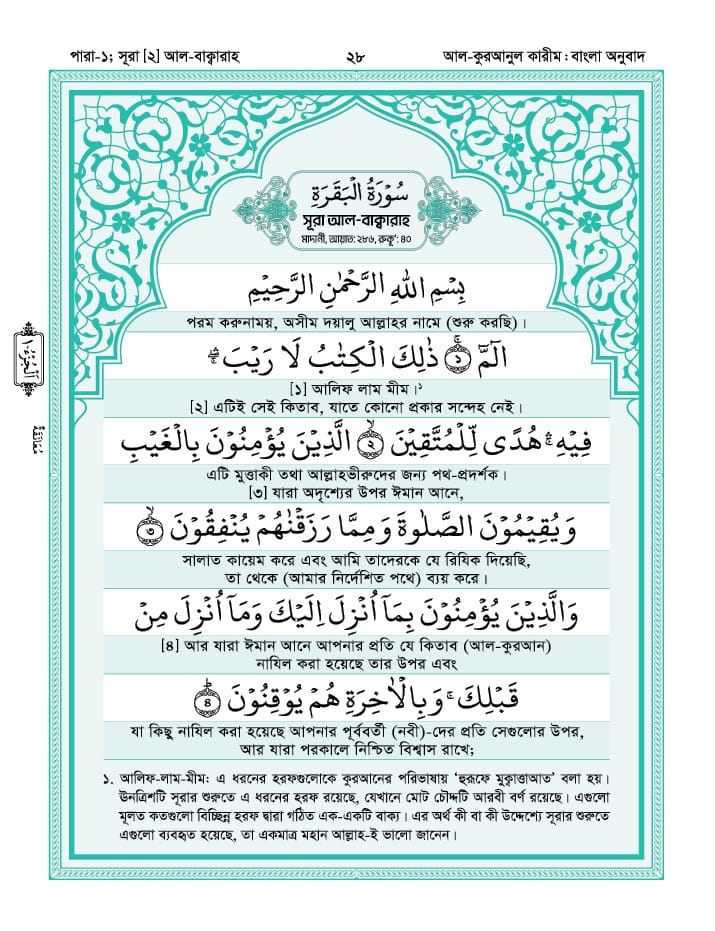 পারা-১; সূরা [২] আল-বাক্বারাহ
২৮
আল-কুরআনুল কারীম : বাংলা অনুবাদ
سُوْرَةُ الْبَقَرَةِ
সূরা আল-বাক্বারাহ
মাদানী, আয়াত: ২৮৬, রুকু': ৪০
بِسْمِ اللّٰهِ الرَّحْمٰنِ الرَّحِيْمِ
পরম করুনাময়, অসীম দয়ালু আল্লাহর নামে (শুরু করছি)।
الٓمّٓ ۚ ۝١ ذٰلِكَ الْكِتٰبُ لَا رَيْبَ ۛ
[১] আলিফ লাম মীম।১
[২] এটিই সেই কিতাব, যাতে কোনো প্রকার সন্দেহ নেই।
فِيْهِ ۛ هُدًى لِّلْمُتَّقِيْنَ ۙ ۝٢ الَّذِيْنَ يُؤْمِنُوْنَ بِالْغَيْبِ
এটি মুত্তাকী তথা আল্লাহভীরুদের জন্য পথ-প্রদর্শক।
[৩] যারা অদৃশ্যের উপর ঈমান আনে,
وَيُقِيْمُوْنَ الصَّلٰوةَ وَمِمَّا رَزَقْنٰهُمْ يُنْفِقُوْنَ ۙ ۝٣
সালাত কায়েম করে এবং আমি তাদেরকে যে রিযিক দিয়েছি,
তা থেকে (আমার নির্দেশিত পথে) ব্যয় করে।
وَالَّذِيْنَ يُؤْمِنُوْنَ بِمَآ اُنْزِلَ اِلَيْكَ وَمَآ اُنْزِلَ مِنْ
[৪] আর যারা ঈমান আনে আপনার প্রতি যে কিতাব (আল-কুরআন)
নাযিল করা হয়েছে তার উপর এবং
قَبْلِكَ ۚ وَبِالْاٰخِرَةِ هُمْ يُوْقِنُوْنَ ؕ ۝٤
যা কিছু নাযিল করা হয়েছে আপনার পূর্ববর্তী (নবী)-দের প্রতি সেগুলোর উপর,
আর যারা পরকালে নিশ্চিত বিশ্বাস রাখে;
১. আলিফ-লাম-মীম: এ ধরনের হরফগুলোকে কুরআনের পরিভাষায় ‘হুরূফে মুক্বাত্তাআত’ বলা হয়।
ঊনত্রিশটি সূরার শুরুতে এ ধরনের হরফ রয়েছে, যেখানে মোট চৌদ্দটি আরবী বর্ণ রয়েছে। এগুলো
মূলত কতগুলো বিচ্ছিন্ন হরফ দ্বারা গঠিত এক-একটি বাক্য। এর অর্থ কী বা কী উদ্দেশ্যে সূরার শুরুতে
এগুলো ব্যবহৃত হয়েছে, তা একমাত্র মহান আল্লাহ-ই ভালো জানেন।
اَلْجُزْءُ -١
مُعَانَقَةٌ